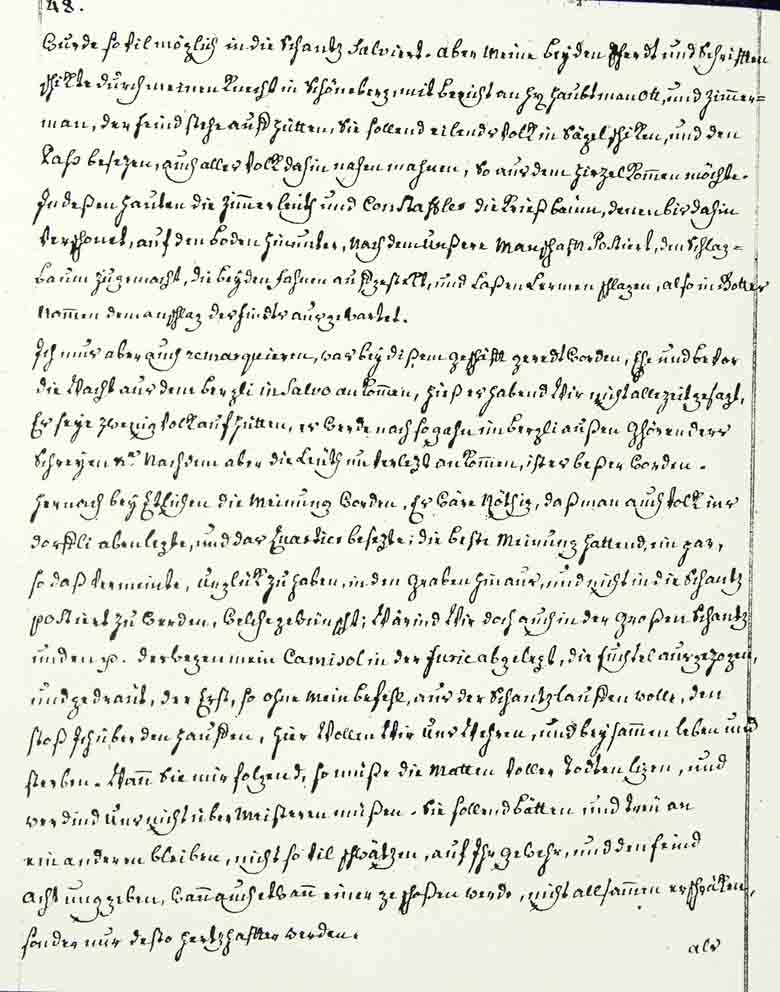 48.
Wurde so vil möglich in die Schantz salviert. Aber meine beyden Pferdt und Schrifften
schikte durch meinen Knecht in Schöneberg, mit bericht an Hr. Haubtman Ott, und Zimmer=
man, der feind stehe auf Hütten, Sie sollend eilends Volk in Sägel schiken, und den
Paß besezen, auch alles Volk dahin nahen mahnen, so aus dem Hirzel kommen möchte.
Indeßen hauten die Zimmerleüth und Constabler die Frießbäüm, denen bis dahin
verschonet, auf den boden hinunter, nach dem unßere Manschafft Postiert, den Schlag=
baum zugemacht, die beyden fahnen aufgestellt, und laßen Lermen schlagen, also in Gottes
Nammen dem anschlag des feinds ausgewartet.
Ich mus aber auch remarquieren, was bey dißem geschäfft geredt worden, Ehe und bevor
die Wacht aus dem bergli in Salvo ankommen, hieß es habend Wir nicht alle zeit gesagt,
Es seye zwenig Volk auf Hütten, es werde nach so gahn im bergli außen Ghörend ers
Schreyen &c. Nachdem aber die Leüth unverlezt ankommen, ist es beßer worden.
Hernach bey Etlichen die Meinung worden, Es wäre Nöthig, daß man auch Volk ins
dörffli aben legte, und das Quartier besezte; die beste Meinung hattend, ein par,
so daß vermeinte, unglük zu haben, in den graben hinaus, und nicht in die Schantz
postiert zu werden, welche gewünscht; Wärind Wir doch auch in der Großen Schantz
unden p. derwegen mein Camisol in der furie abgelegt, die fuchtel ausgezogen,
und gedraut, der Erst, so ohne mein befehl, aus der Schantz lauffen wolle, den
stoß Ich über den hauffen, hier Wollen Wir uns Wehren, und beysammen leben und
sterben. Wann Sie mir folgend, so müße die Matten voller Todten ligen, und
werdind uns nicht über Meisteren müßen. Sie sollend bätten und treü an
ein anderen bleiben, nicht so vil schwätzen, auf Ihr gewehr, und den feind
acht unggeben, wann auch etwann einer geschoßen werde, nicht all sammen erschräken,
sonder nur desto hertzhaffter werden.
als